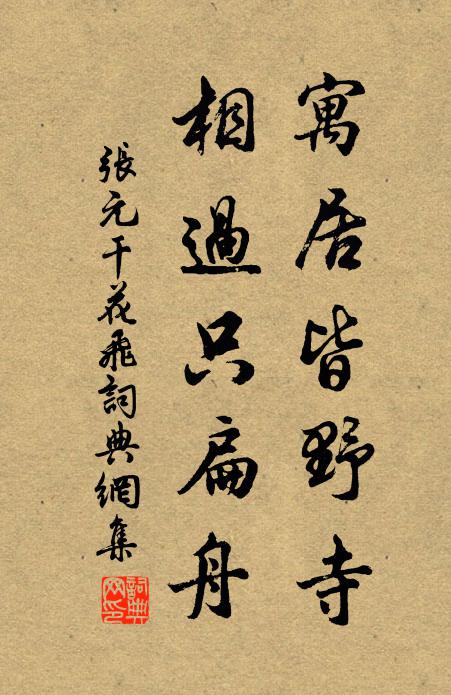 寓居皆野寺
相過只扁舟
張元干花飛詞典網集
詞典网印